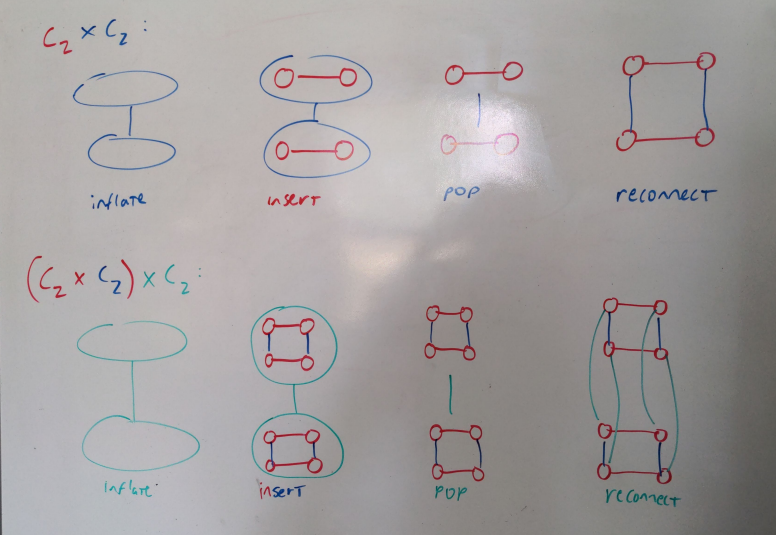 C₂ × C₂ :
inflate insert pop reconnect
(C₂ × C₂) × C₂ :
inflate insert pop reconnect